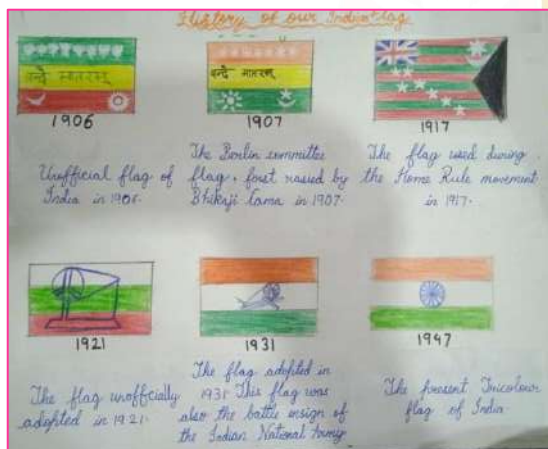 History of our Indian flag
वन्दे मातरम्
वन्दे मातरम्
1906
1907
1917
Unofficial flag of
India in 1906.
The Berlin committee
flag, first rasied by
Bhikaji Cama in 1907.
The flag used during
the Home Rule movement
in 1917.
1921
1931
1947
The flag unofficially
adopted in 1921.
The flag adopted in
1931. This flag was
also the battle ensign of
the Indian National Army
The present Tricolour
flag of India